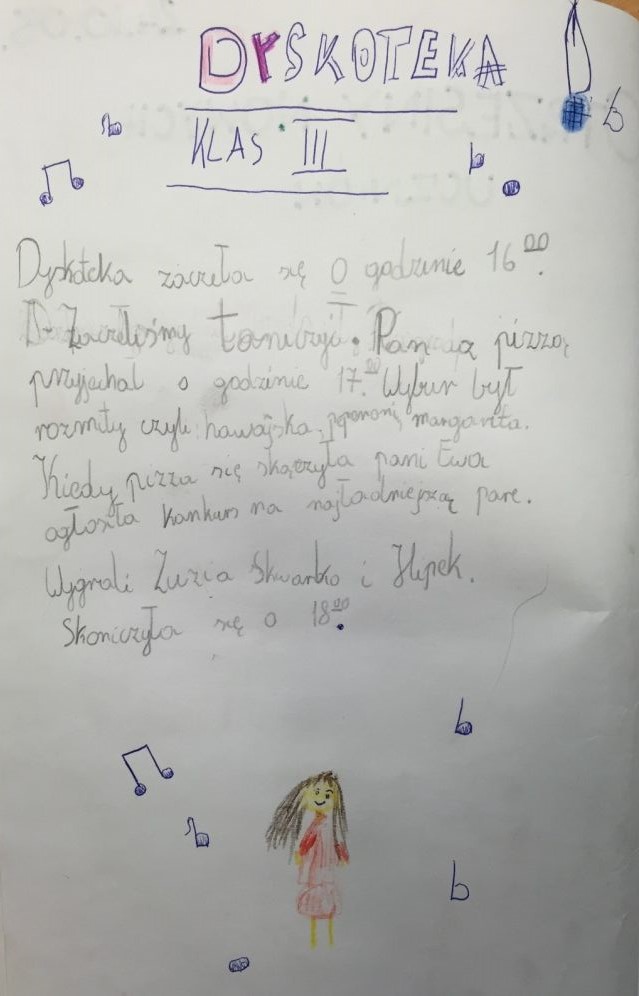 DYSKOTEKA
KLAS III
Dyskoteka zaczeła się O godzinie 16⁰⁰.
Zaczeliśmy tanczyć. Pan z pizzą
przyjechal o godzinie 17.⁰⁰ Wybur był
rozmity czyli hawajska, peperonij margarita.
Kiedy pizza się skączyła pani Ewa
ogłosiła konkurs na najładniejszą pare.
Wygrali Zuzia Skwarko i Hipek.
Skoniczyła się o 18⁰⁰.